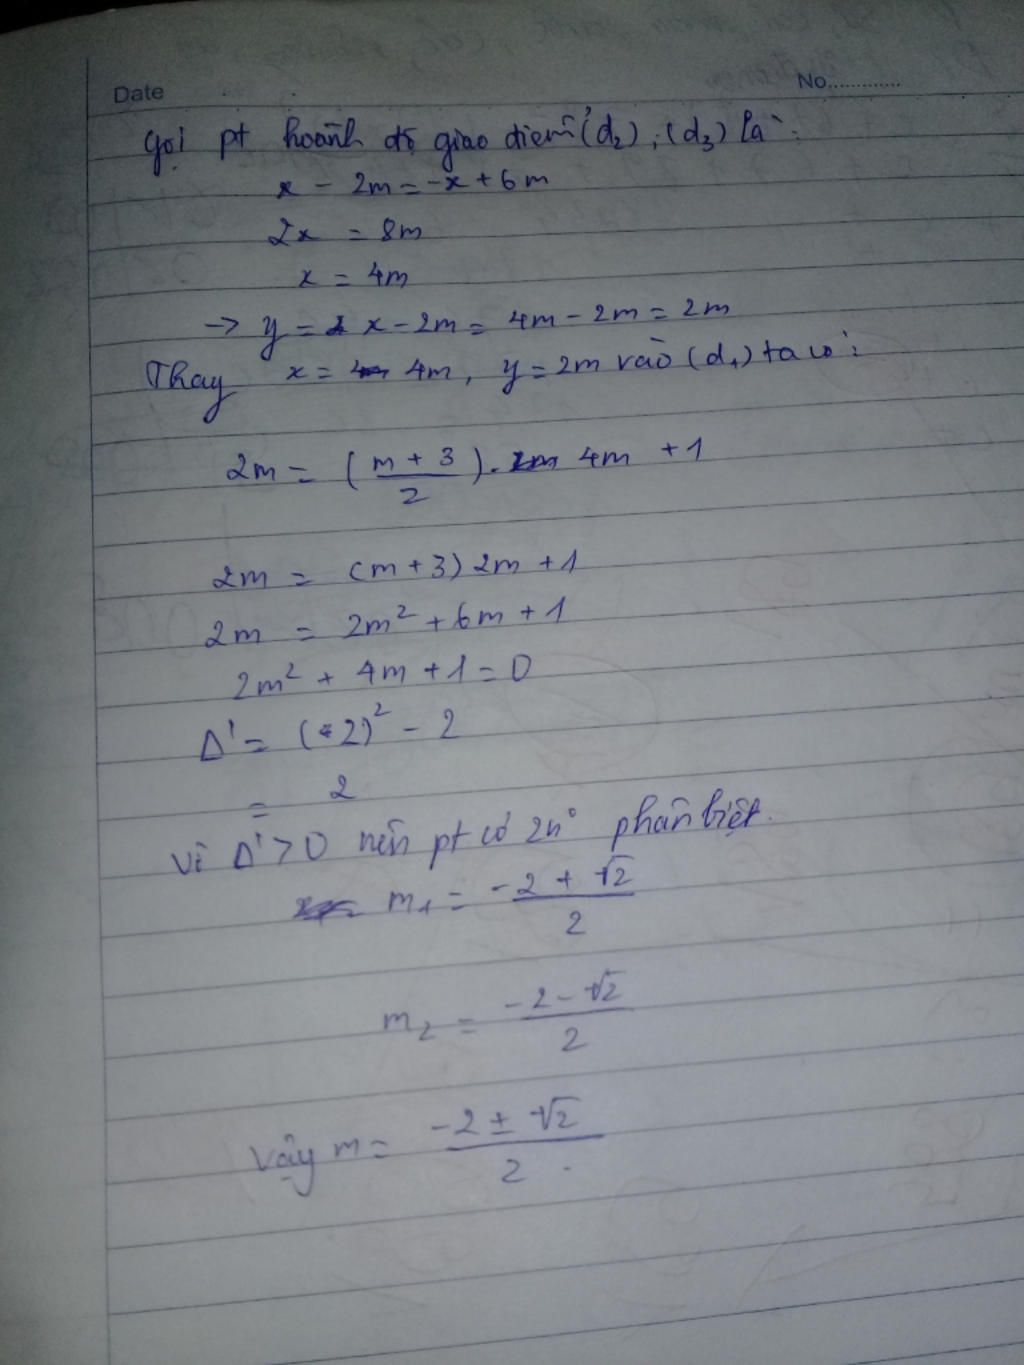 Date No.............
Gọi pt hoành độ giao điểm (d₂), (d₃) là:
x - 2m = -x + 6m
2x = 8m
x = 4m
→ y = x - 2m = 4m - 2m = 2m
Thay x = 4m, y = 2m vào (d₁) ta có:
2m = (m + 3 / 2) . 4m + 1
2m = (m + 3) 2m + 1
2m = 2m² + 6m + 1
2m² + 4m + 1 = 0
Δ' = (2)² - 2
= 2
Vì Δ' > 0 nên pt có 2n° phân biệt.
m₁ = -2 + √2 / 2
m₂ = -2 - √2 / 2
Vậy m = -2 ± √2 / 2 .